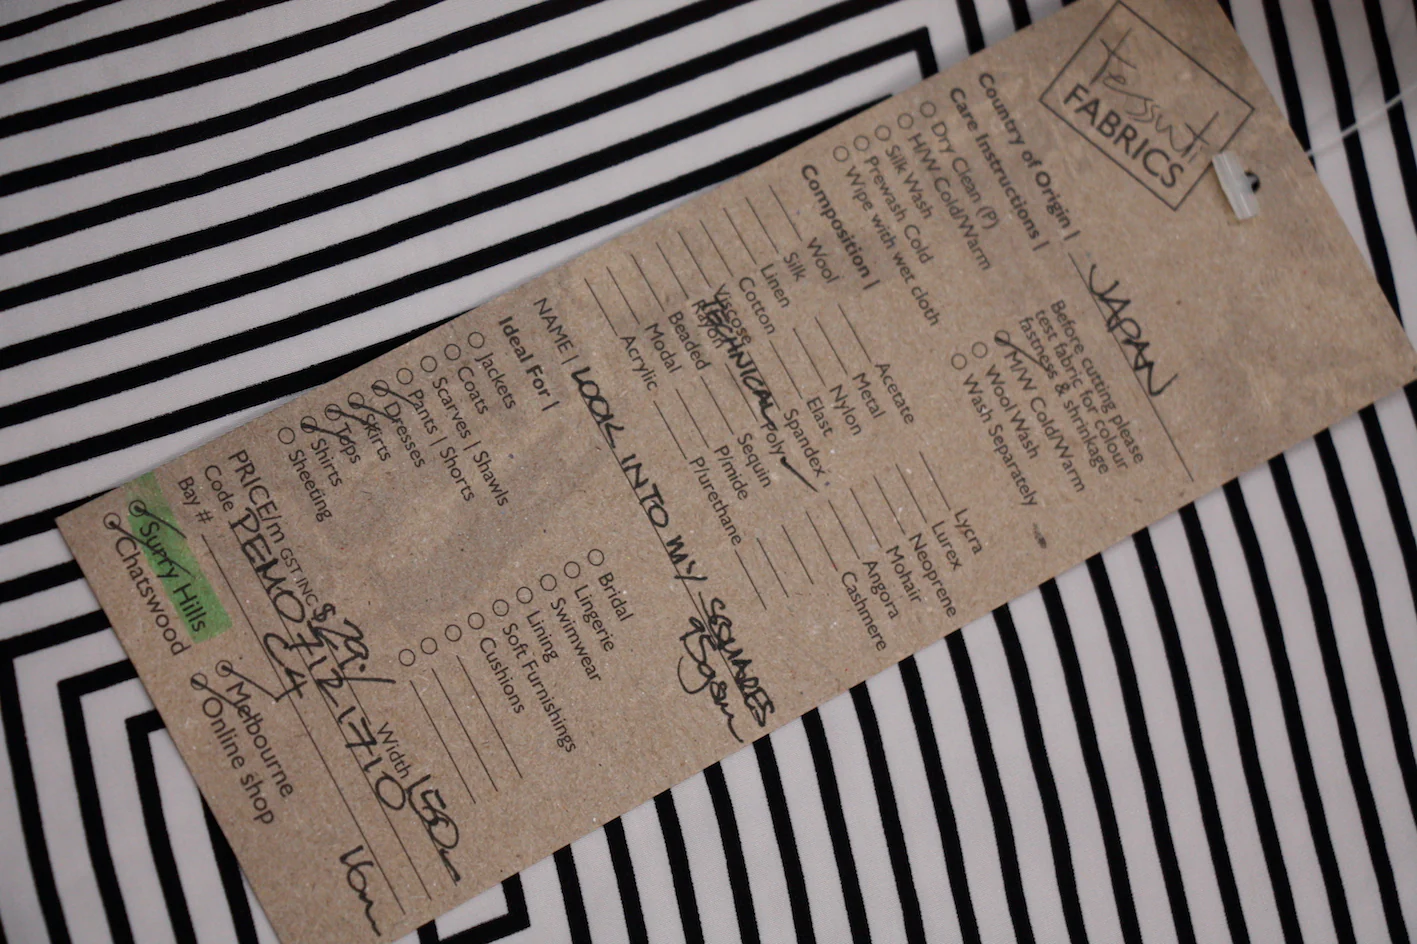 tessuti
FABRICS
Country of Origin | JAPAN
Care Instructions |
Before cutting please
test fabric for colour
fastness & shrinkage
Dry Clean (P)
H/W Cold/Warm
Silk Wash
Prewash Cold
Wipe with wet cloth
M/W Cold/Warm
Wool Wash
Wash Separately
Composition |
Wool
Silk
Linen
Cotton
Viscose
Rayon
Beaded
Modal
Acrylic
Acetate
Metal
Nylon
Elast
Spandex
TECHNICAL Poly
Sequin
P/mide
P/urethane
Lycra
Lurex
Neoprene
Mohair
Angora
Cashmere
NAME | LOOK INTO MY SQUARES
95gsm
Ideal For |
Jackets
Coats
Scarves | Shawls
Pants | Shorts
Dresses
Skirts
Tops
Shirts
Sheeting
Bridal
Lingerie
Swimwear
Lining
Soft Furnishings
Cushions
PRICE/m GST INC $29/ Width 150
Code PEMO7121710
Bay # C4
Surry Hills
Chatswood
Melbourne
Online shop